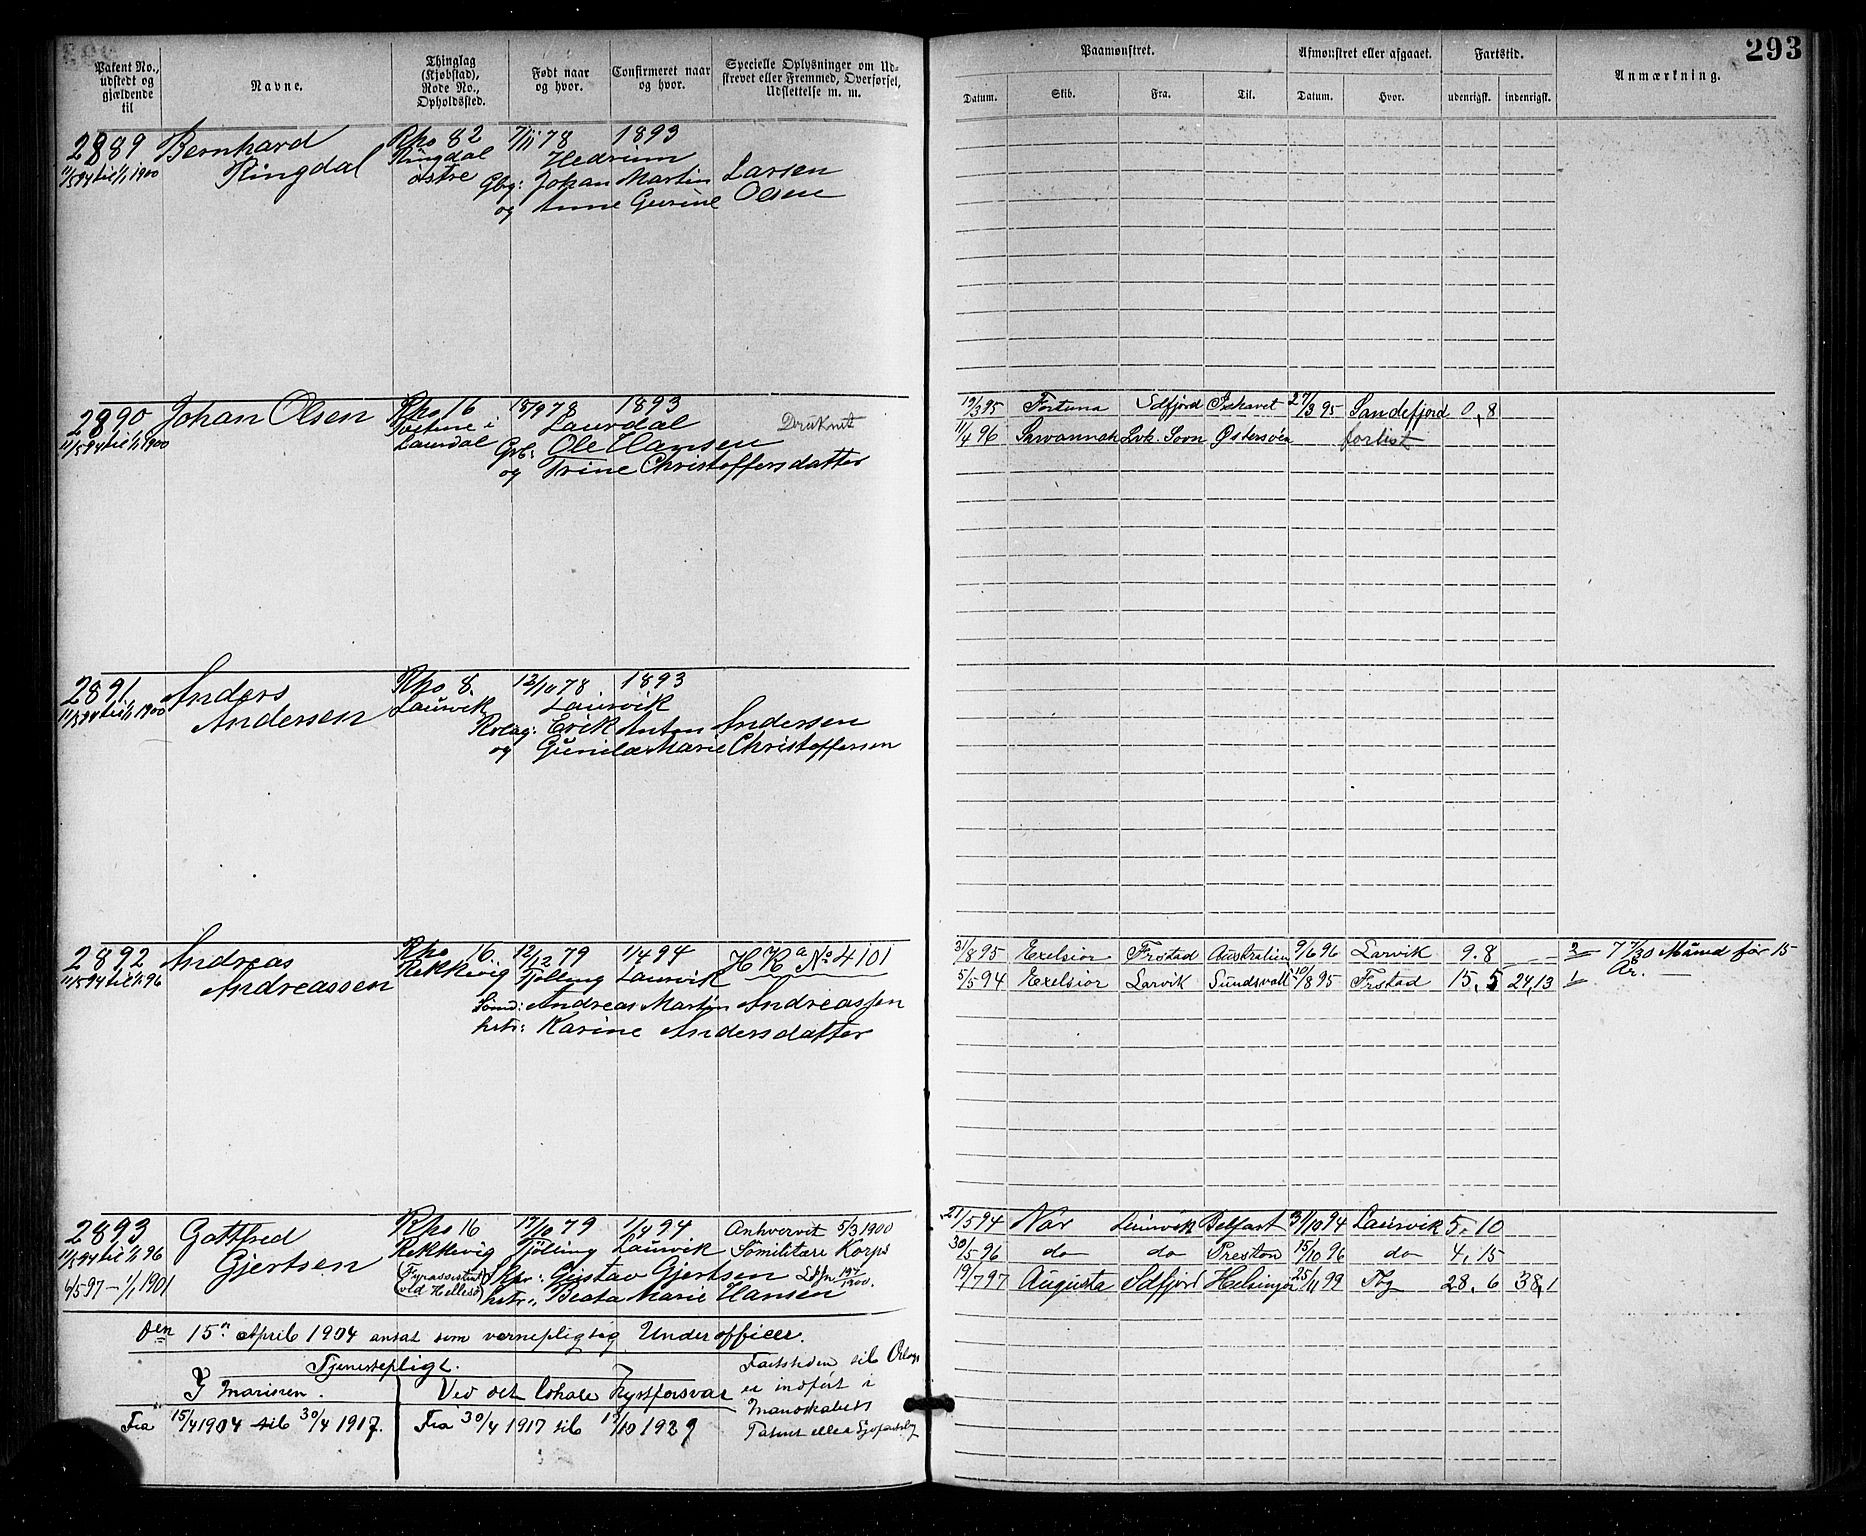 293
Patent No., udstedt og gjældende til
Navne.
Thinglag (Kjøbstad), Rode No., Opholdssted.
Født naar og hvor.
Confirmeret naar og hvor.
Specielle Oplysninger om Udskrevet eller Fremmed, Overførsel, Udslettelse m. m.
Paamønstret.
Afmønstret eller afgaaet.
Fartstid.
Anmærkning.
Datum. Skib. Fra. Til. Datum. Hvor. udenrigst. indenrigst.
2889 Bernhard Rho 82 7/11 78 1893
11/5 94 til 1/1 1900 Ringdal Ringdal Hedrum
østre Gbg: Johan Martin Larsen
og Anne Gurine Olsen
2890 Johan Olsen Rho 16 18/9 78 1893
11/5 94 til 1/1 1900 i Laurdal Druknet
Laurdal Grb: Ole Hansen
og Trine Christoffersdatter
19/3 95 Fortuna Sdfjord Ishavet 27/3 95 Sandefjord 0,8
11/4 96 Savannah Lvk. Sovn Østersøen forlist
2891 Anders Rho 8 12/10 78 1893
11/5 94 til 1/1 1900 Andersen Laurvik Laurvik
Rolag: Erik Anton Andersen
og Gunila Marie Christoffersen
2892 Andreas Rho 16 12/12 79 1/4 94 H K a No 4101
11/5 94 til 1/1 96 Andreassen Rekkevig Tjølling Laurvik
Sømd: Andreas Martin Andreassen
hstr: Karine Andersdatter
31/8 95 Exelsior Frstad Australien 9/6 96 Larvik 9.8 2 7 7/30 Maaned før 15
5/5 94 Exelsior Larvik Sundsvall 10/8 95 Frstad 15,5 24,13 1 År.
2893 Gottfred Rho 16 17/10 79 1/4 94 Anhvervet 5/3 1900
11/5 94 til 1/1 96 Gjertsen Rekkevig Tjølling Laurvik Sømilitære Korps
6/5 97 - 1/1 1901 (Fyrassistent Skpr: Gustav Gjertsen
ved Hellesø) hstr: Beata Marie Hansen
21/5 94 Nor Laurvik Belfast 31/10 94 Laurvik 5,10
30/5 96 do do Preston 15/10 96 do 4,15
19/7 97 Augusta Sdfjord Helsingør 25/11 99 Tbg 28.6 38,1
Den 15de April 1904 ansat som vernepligtig Underofficer.
Tjenestepligt.
I marinen.
Ved det lokale Kystforsvar
Fra 15/4 1904 til 30/4 1917.
Fra 30/4 1917 til 17/10 1929
Fartstiden til Orlogs
er indført i
Mandskabets
Patent eller Sjøfartsbog